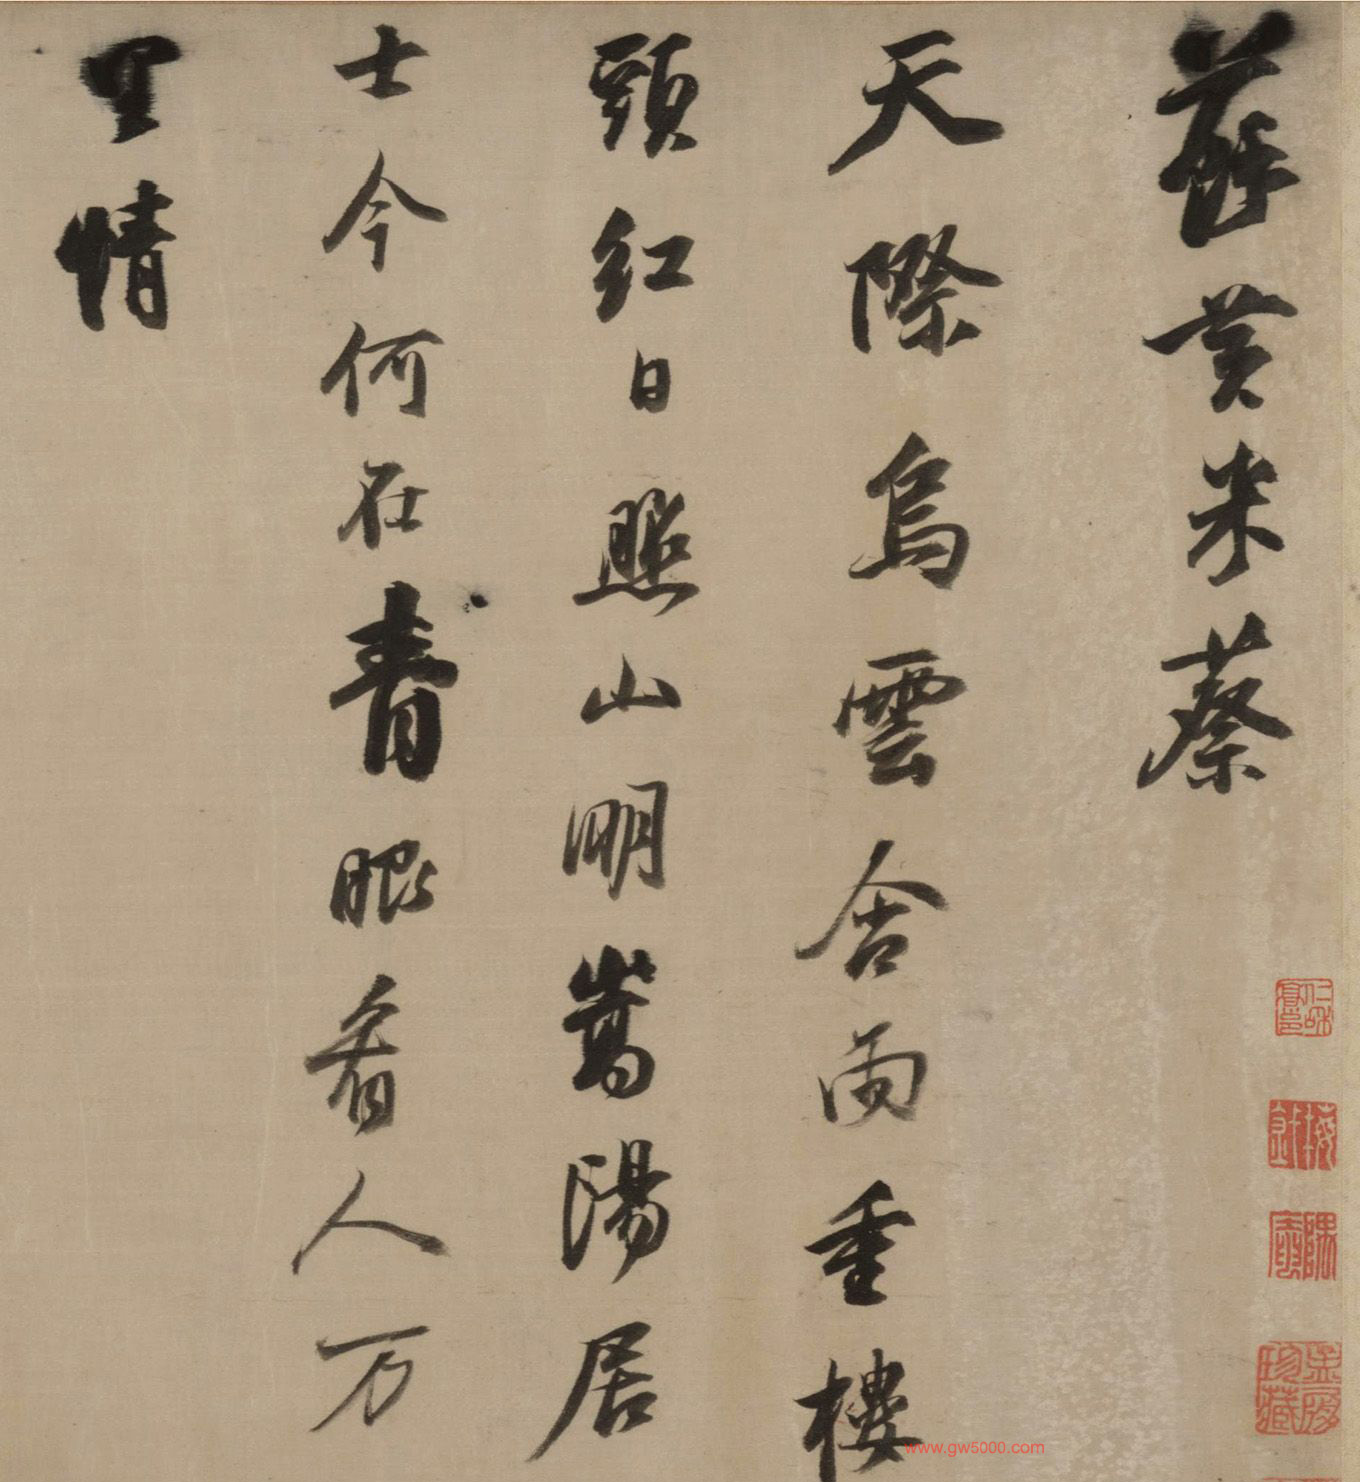 蘇黃米蔡
天際烏雲含雨重樓
頭紅日照山明嵩陽居
士今何在青眼看人万
里情
www.gw5000.com